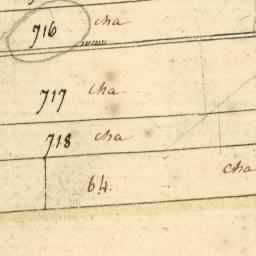 716 cha
717 cha
718 cha
64. cha